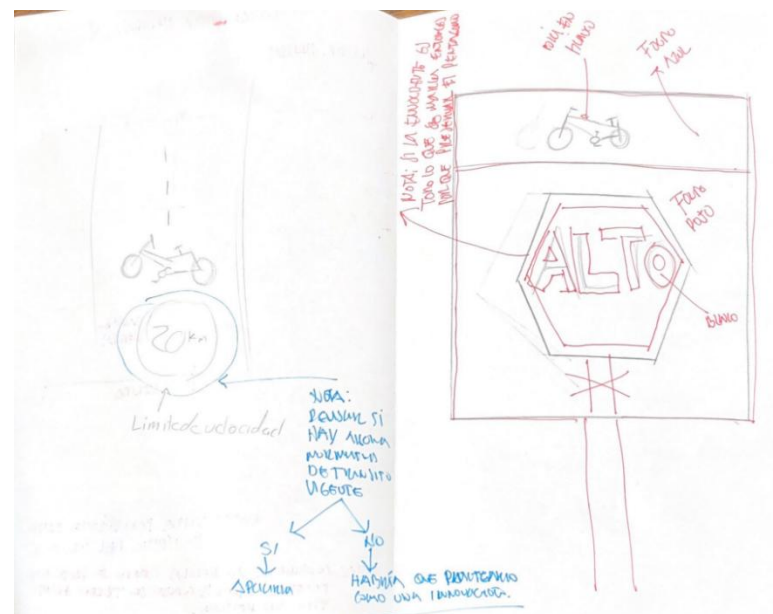 20 km
Limite de velocidad
NOTA:
REVISAR SI
HAY ALGUNA
NORMATIVA
DE TRANSITO
VIGENTE
SI
NO
APLICARLA
HABRÍA QUE PLANTEARLO
COMO UNA INNOVACIÓN.
NOTA: SI LA ENVOLVENTE ES
TODO LO QUE SE MARCA ENTONCES
POR QUE PRESERVAR EL PENTAGONO
BICI EN
BLANCO
FONDO
AZUL
FONDO
ROJO
ALTO
BLANCO